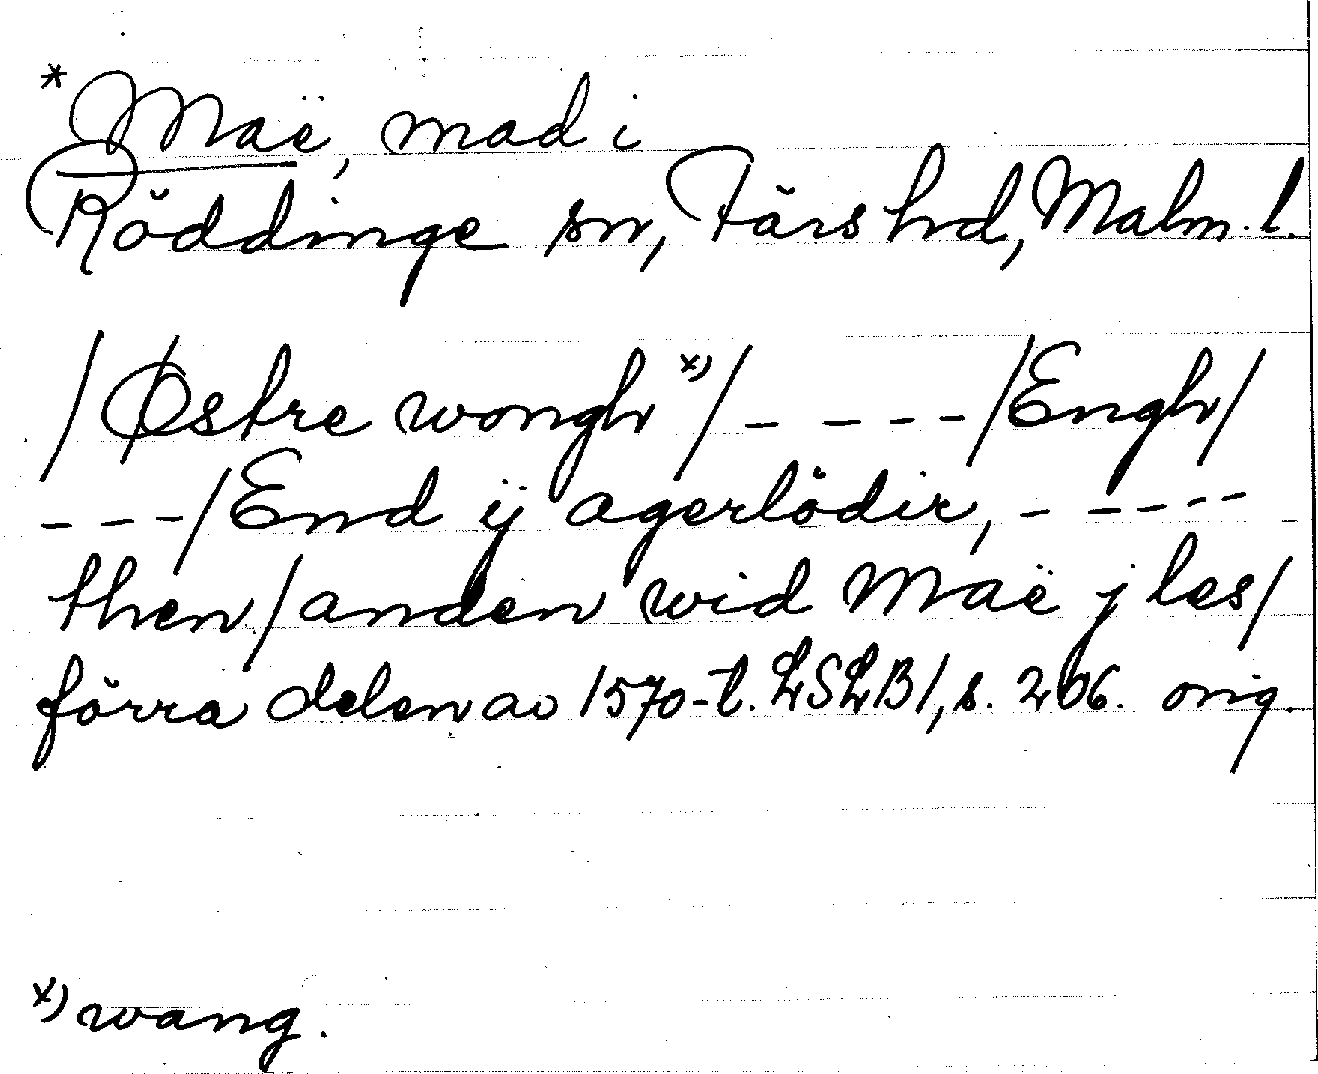 *Maë, mad i
Röddinge sn, Färs hd, Malm. l.
/Østre wongh x)/ - - - - /Engh/
- - - /End ij agerlödir, - - - - -
then/anden wid Maë j les/
förra delen av 1570-t. LSLB1, s. 206. orig.
x) wang.